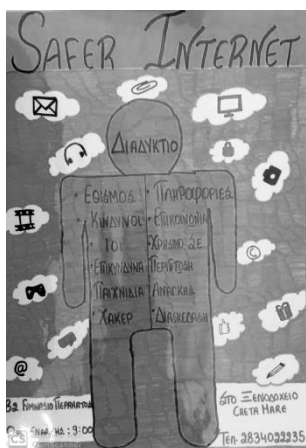 SAFER INTERNET
ΔΙΑΔΥΚΤΙΟ
• ΕΘΙΣΜΟΣ
• ΚΙΝΔΥΝΟΙ
• ΙΟΙ
• ΕΠΙΚΙΝΔΥΝΑ
ΠΑΙΧΝΙΔΙΑ
• ΧΑΚΕΡ
• ΠΛΗΡΟΦΟΡΙΕΣ
• ΕΠΙΚΟΙΝΩΝΙΑ
• ΧΡΗΣΙΜΟ ΣΕ
ΠΕΡΙΠΤΩΣΗ
ΑΝΑΓΚΗΣ
• ΔΙΑΣΚΕΔΑΣΗ
@
©
Β2 ΓΥΜΝΑΣΙΟ
: 9:00
ΣΤΟ ΞΕΝΟΔΟΧΕΙΟ
CRETA MARE
ΤΕΛ: 2834022235
CS CamScanner